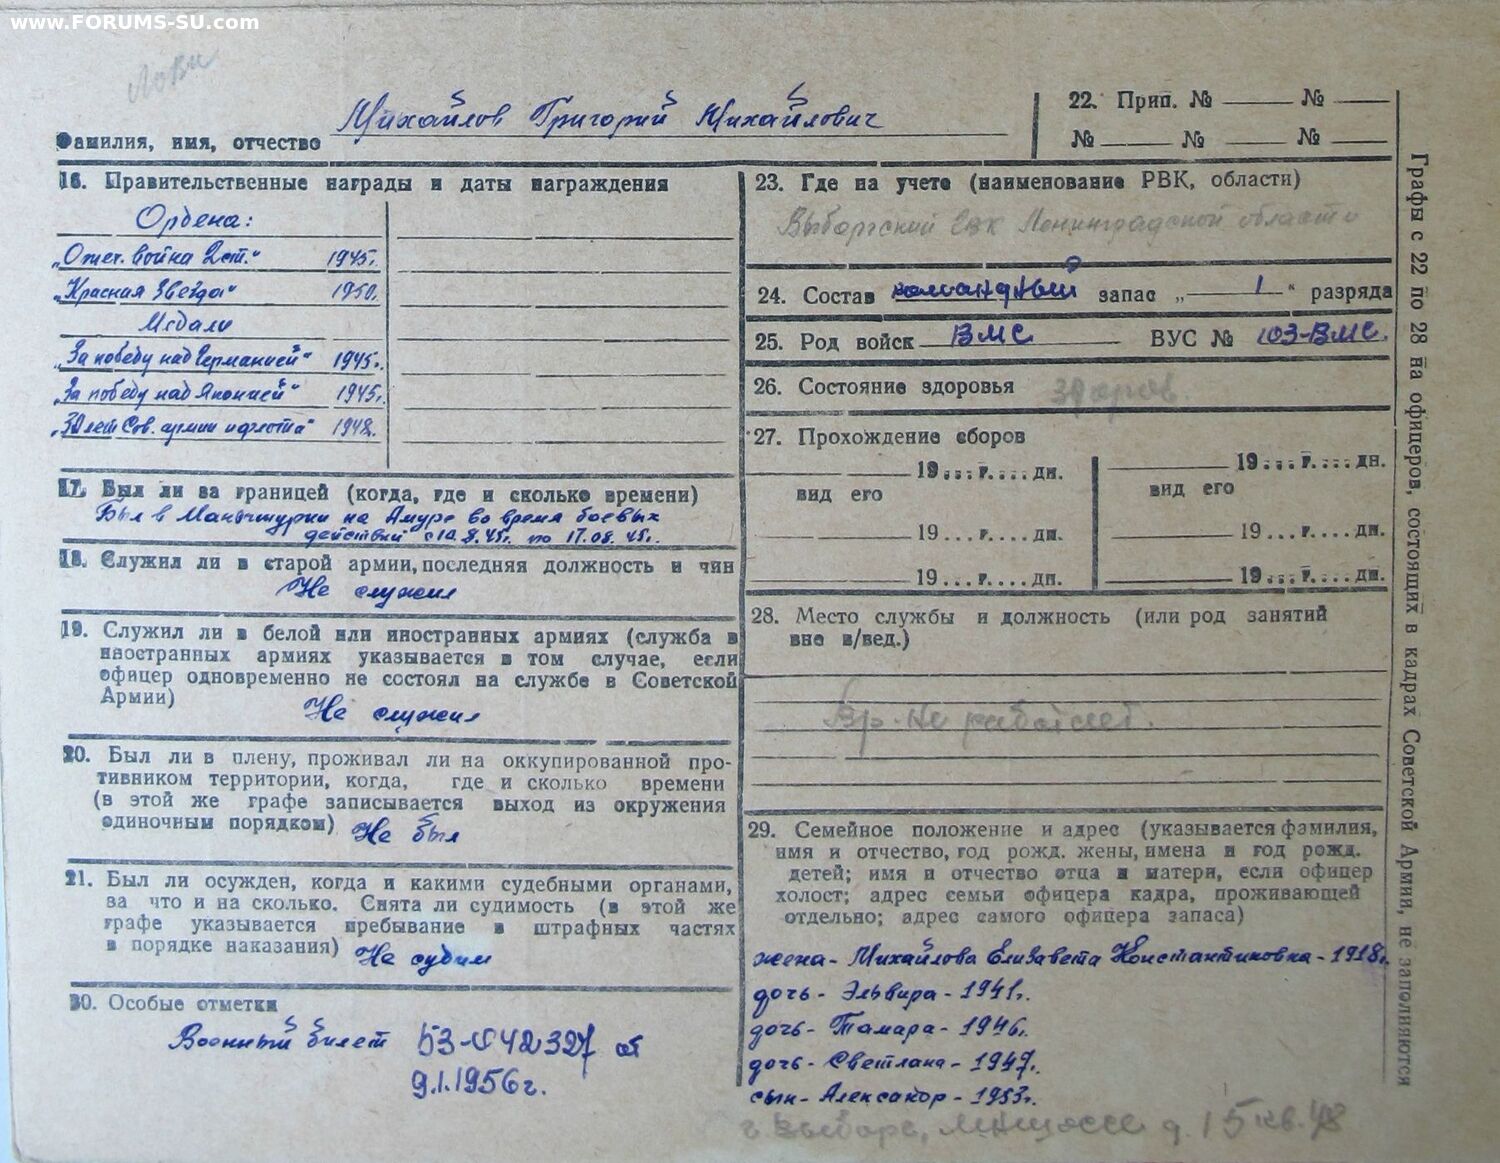 www.FORUMS-SU.com
Фамилия, имя, отчество Михайлов Григорий Михайлович
22. Прип. № № 
№ № №
16. Правительственные награды и даты награждения
Ордена:
„Отеч. война 2 ст.“ 1945г.
„Красная Звезда“ 1950г.
Медали
„За победу над Германией“ 1945г.
„За победу над Японией“ 1945г.
„30 лет Сов. армии и флота“ 1948г.
17. Был ли за границей (когда, где и сколько времени)
Был в Манчжурии на Амуре во время боевых
действий с 10.8.45г. по 17.08.45г.
18. Служил ли в старой армии, последняя должность и чин
Не служил
19. Служил ли в белой или иностранных армиях (служба в
иностранных армиях указывается в том случае, если
офицер одновременно не состоял на службе в Советской
Армии)
Не служил
20. Был ли в плену, проживал ли на оккупированной про-
тивником территории, когда, где и сколько времени
(в этой же графе записывается выход из окружения
одиночным порядком) Не был
21. Был ли осужден, когда и какими судебными органами,
за что и на сколько. Снята ли судимость (в этой же
графе указывается пребывание в штрафных частях
в порядке наказания) Не судим
30. Особые отметки
Военный билет 53-042327 от
9.1.1956г.
23. Где на учете (наименование РВК, области)
Выборгский ГВК Ленинградской области
24. Состав командный запас „ 1 “ разряда
25. Род войск ВМС ВУС № 103-ВМС.
26. Состояние здоровья здоров.
27. Прохождение сборов
19...г....дн. 19...г....дн.
вид его вид его
19...г....дн. 19...г....дн.
19...г....дн. 19...г....дн.
28. Место службы и должность (или род занятий
вне в/вед.)
Вр. не работает.
29. Семейное положение и адрес (указывается фамилия,
имя и отчество, год рожд. жены, имена и год рожд.
детей; имя и отчество отца и матери, если офицер
холост; адрес семьи офицера кадра, проживающей
отдельно; адрес самого офицера запаса)
жена - Михайлова Елизавета Константиновна - 1918г.
дочь - Эльвира - 1941г.
дочь - Тамара - 1946г.
дочь - Светлана - 1947г.
сын - Александр - 1953г.
г. Выборг, д. 15 кв. 48
Графы с 22 по 28 на офицеров, состоящих в кадрах Советской Армии, не заполняются